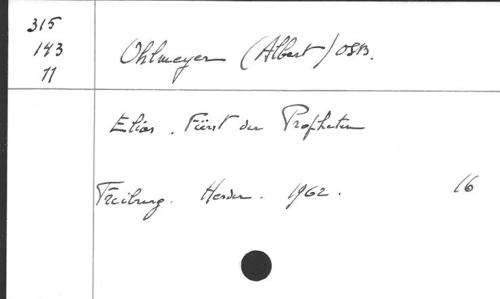 315
143
11
Ohlmeyer (Albert) OSB.
Elias. Fürst der Propheten
Freiburg. Herder. 1962.
16